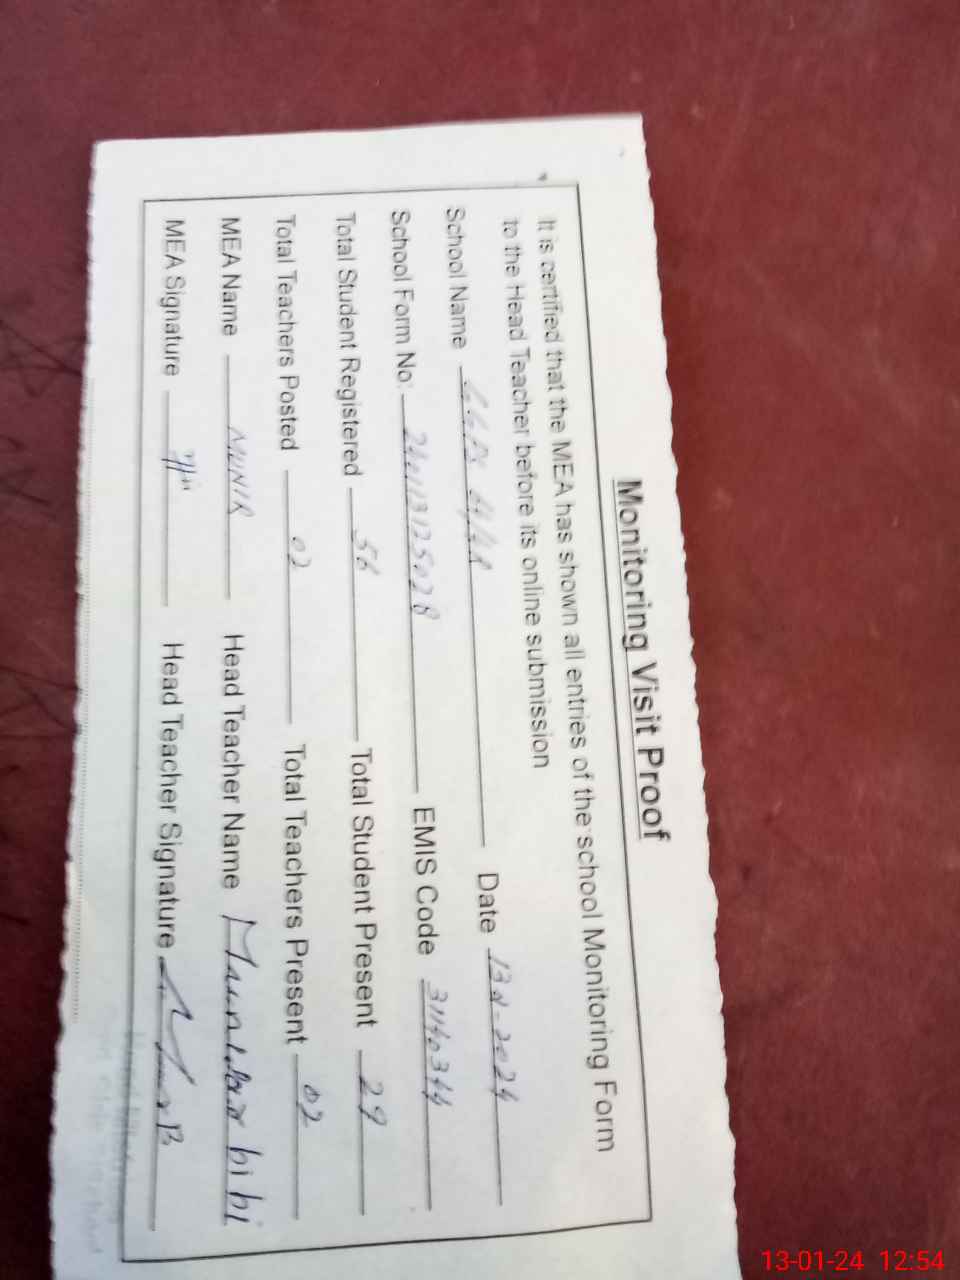 Monitoring Visit Proof
It is certified that the MEA has shown all entries of the school Monitoring Form
to the Head Teacher before its online submission
School Name Date 13-1-2024
School Form No: EMIS Code 31140344
Total Student Registered 56 Total Student Present 29
Total Teachers Posted 02 Total Teachers Present 02
MEA Name MUNIR Head Teacher Name bibi
MEA Signature Head Teacher Signature
13-01-24 12:54